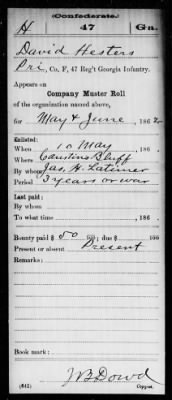 Confederate.
H 47 Ga.
David Hesters
Pri, Co. F, 47 Reg't Georgia Infantry.
Appears on
Company Muster Roll
of the organization named above,
for May & June, 1862
Enlisted:
When 10 May, 186 .
Where Caustins Bluff
By whom Jas. H. Latimer
Period 3 years or war
Last paid:
By whom
To what time , 186 .
Bounty paid $ 50 100; due $ 100
Present or absent Present
Remarks:
Book mark:
J B Dowd
(642) Copyist.